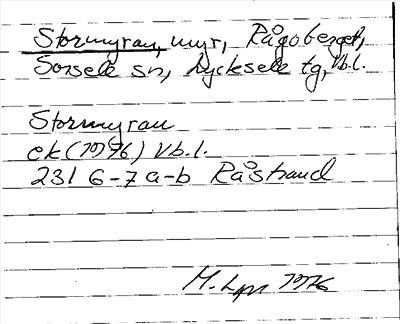 Stormyran, myr, Rågoberget,
Sorsele sn, Lycksele tg, Vb.l.
Stormyran
ek (1976) Vb.l.
231 6-7 a-b Råstrand
M. 1976